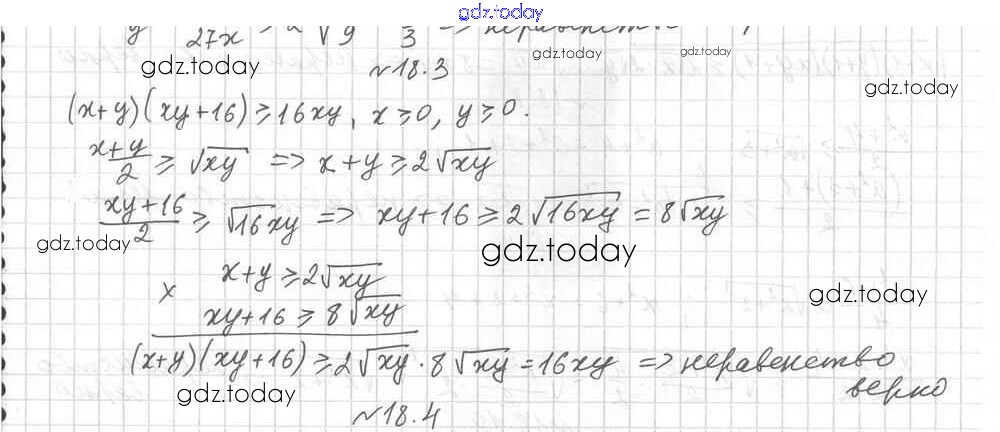 gdz.today
y 27x 2√9 3 => неравенст
gdz.today gdz.today
gdz.today №18.3
gdz.today
(x+y)(xy+16)≥16xy, x≥0, y≥0.
x+y/2 ≥ √xy => x+y≥2√xy
xy+16/2 ≥ √16xy => xy+16≥2√16xy = 8√xy
gdz.today gdz.today
x x+y≥2√xy
gdz.today
xy+16≥8√xy
(x+y)(xy+16)≥2√xy·8√xy=16xy => неравенство
верно
gdz.today
№18.4